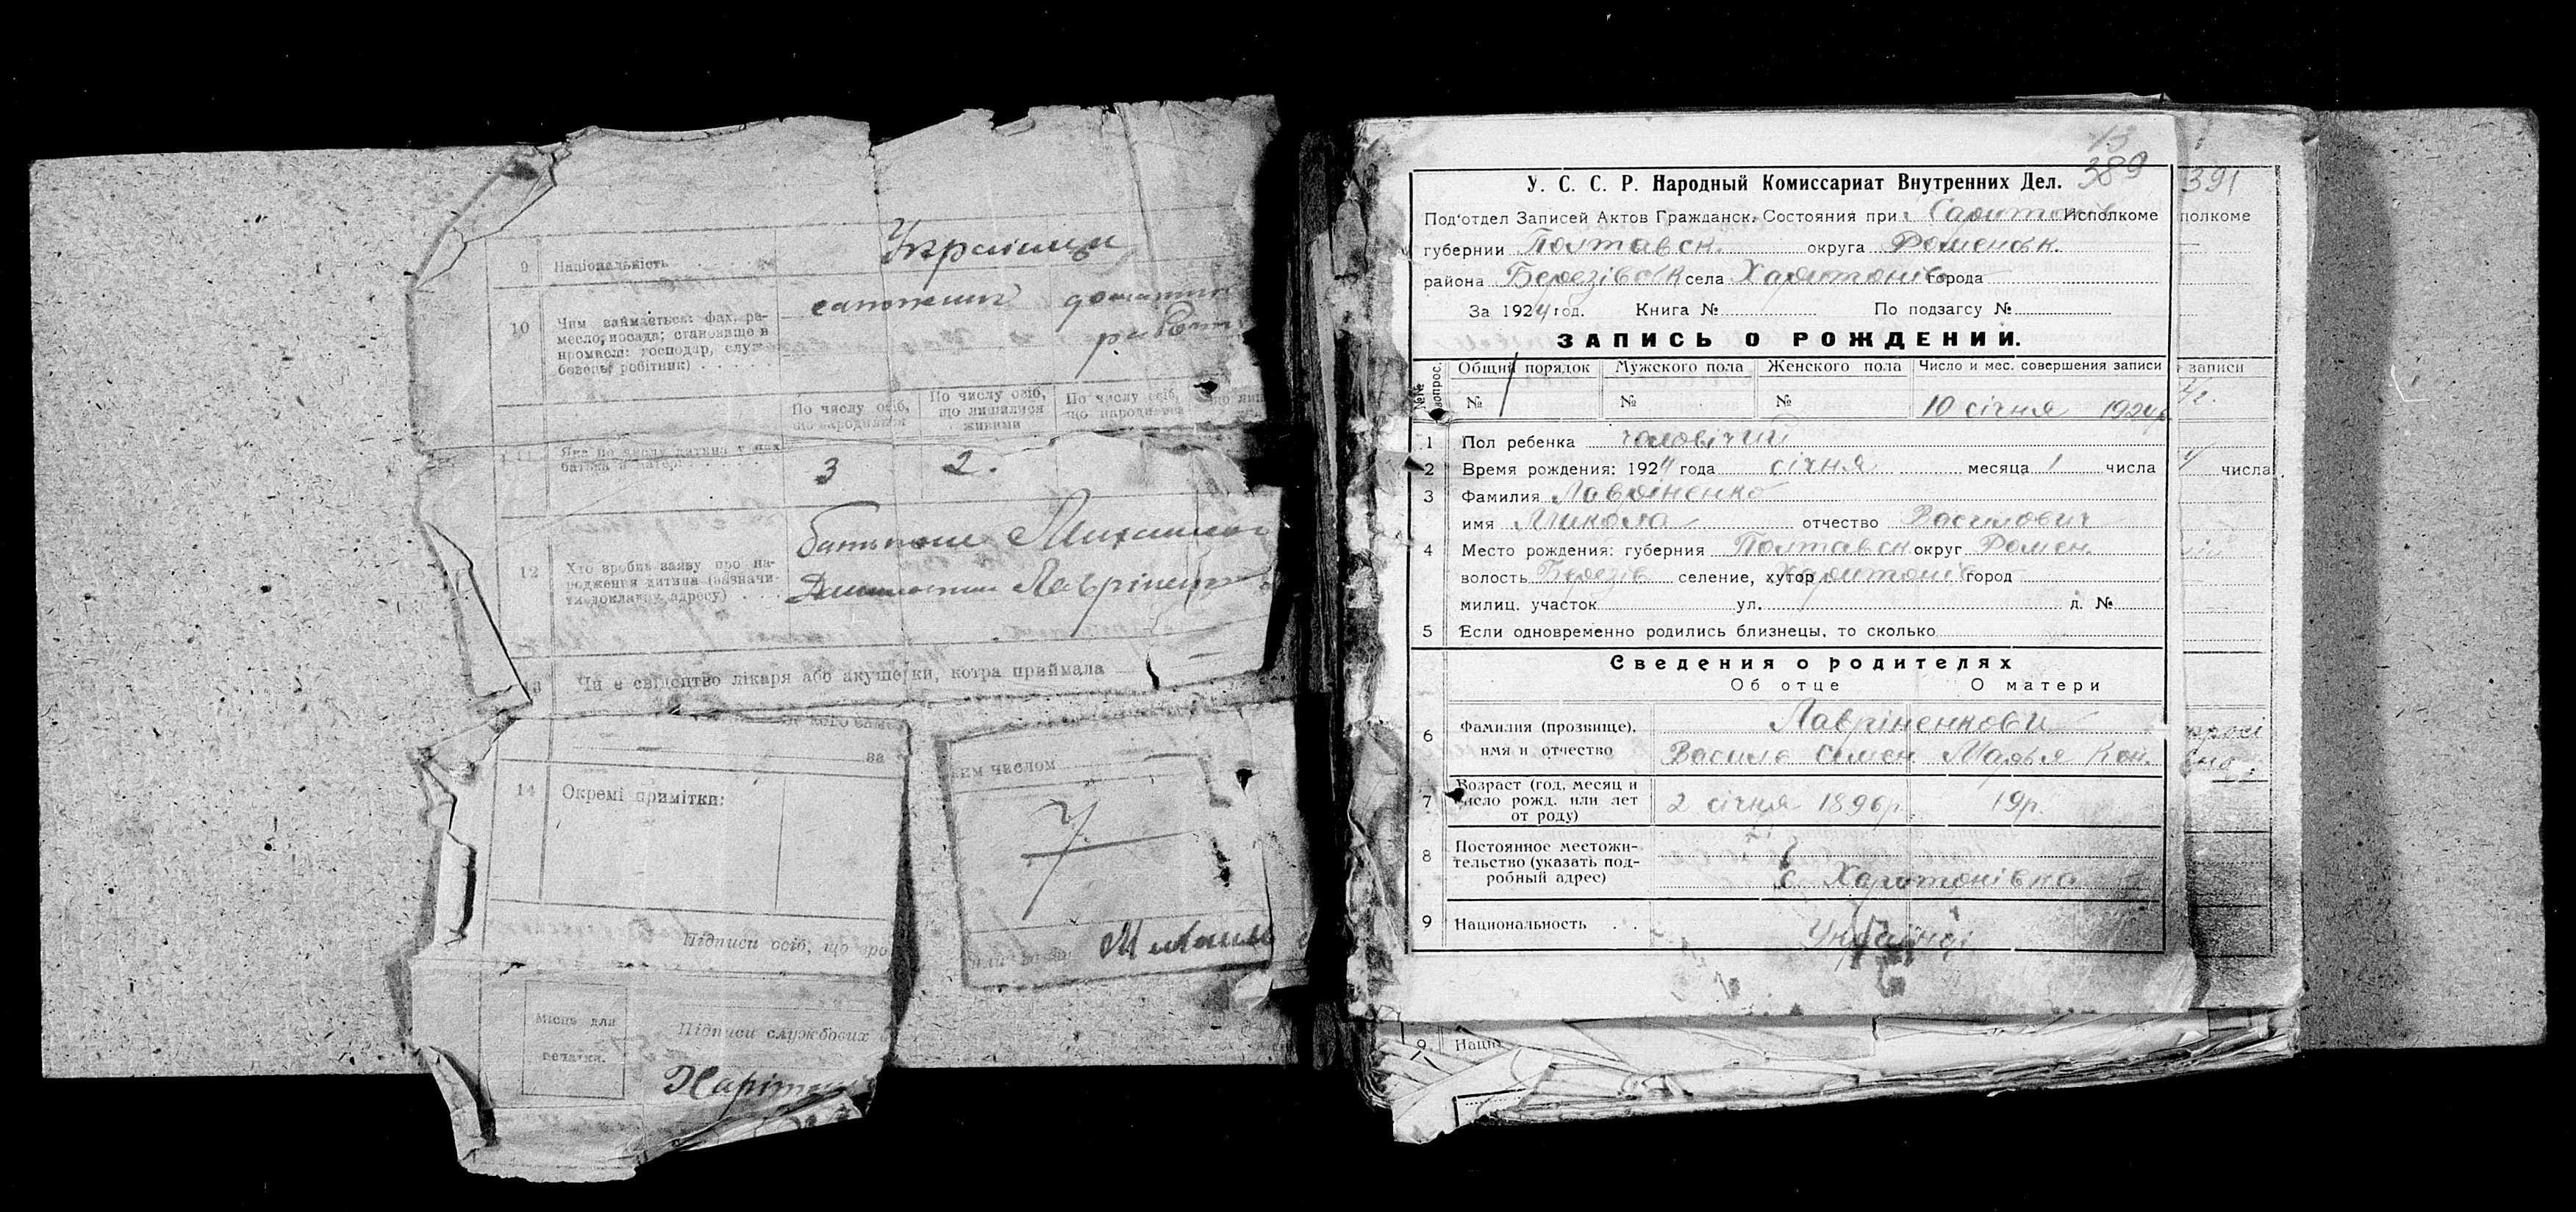 9 Національність Українці
10 Чим займається: фах, ре-
месло, посада; становище в
промислі: господар, служ-
бовець, робітник)
По числу осіб,
що народилися
По числу осіб,
що лишилися
живими
По числу осіб,
що народилися
11 Яка по числу дитина у них
батька й матері 3 2.
12 Хто зробив заяву про на-
родження дитини (зазначи-
ти докладну адресу)
Лаврінен
Чи є свідоцтво лікаря або акушерки, котра приймала
за
им числом
14 Окремі примітки:
Підписи осіб, що зро
Місце для
печатки.
Підписи службових
Харіто
13
389
У. С. С. Р. Народный Комиссариат Внутренних Дел.
Под'отдел Записей Актов Гражданск. Состояния при Исполкоме
губернии Полтавск. округа Роменськ.
района Березівськ села Харитонів города
За 1924 год. Книга № По подзагсу №
ЗАПИСЬ О РОЖДЕНИИ.
№№ вопрос.
Общий порядок Мужского пола Женского пола Число и мес. совершения записи
№ 1 № № 10 січня 1924р
1 Пол ребенка чоловічий
2 Время рождения: 1924 года січня месяца 1 числа
3 Фамилия Лавріненко
имя Микола отчество Василович
4 Место рождения: губерния Полтавск округ Ромен.
волость Березів селение, хутор Харитонів город
милиц. участок ул. д. №
5 Если одновременно родились близнецы, то сколько
Сведения о родителях
Об отце О матери
6 Фамилия (прозвище),
имя и отчество
Лавріненкови
Василь Семен Марья Кон.
7 Возраст (год, месяц и
число рожд. или лет
от роду)
2 січня 1896р. 19р.
8 Постоянное местожи-
тельство (указать под-
робный адрес)
с. Харитонівка
9 Национальность Українці
391
полкоме
записи
числа
9. Нацио